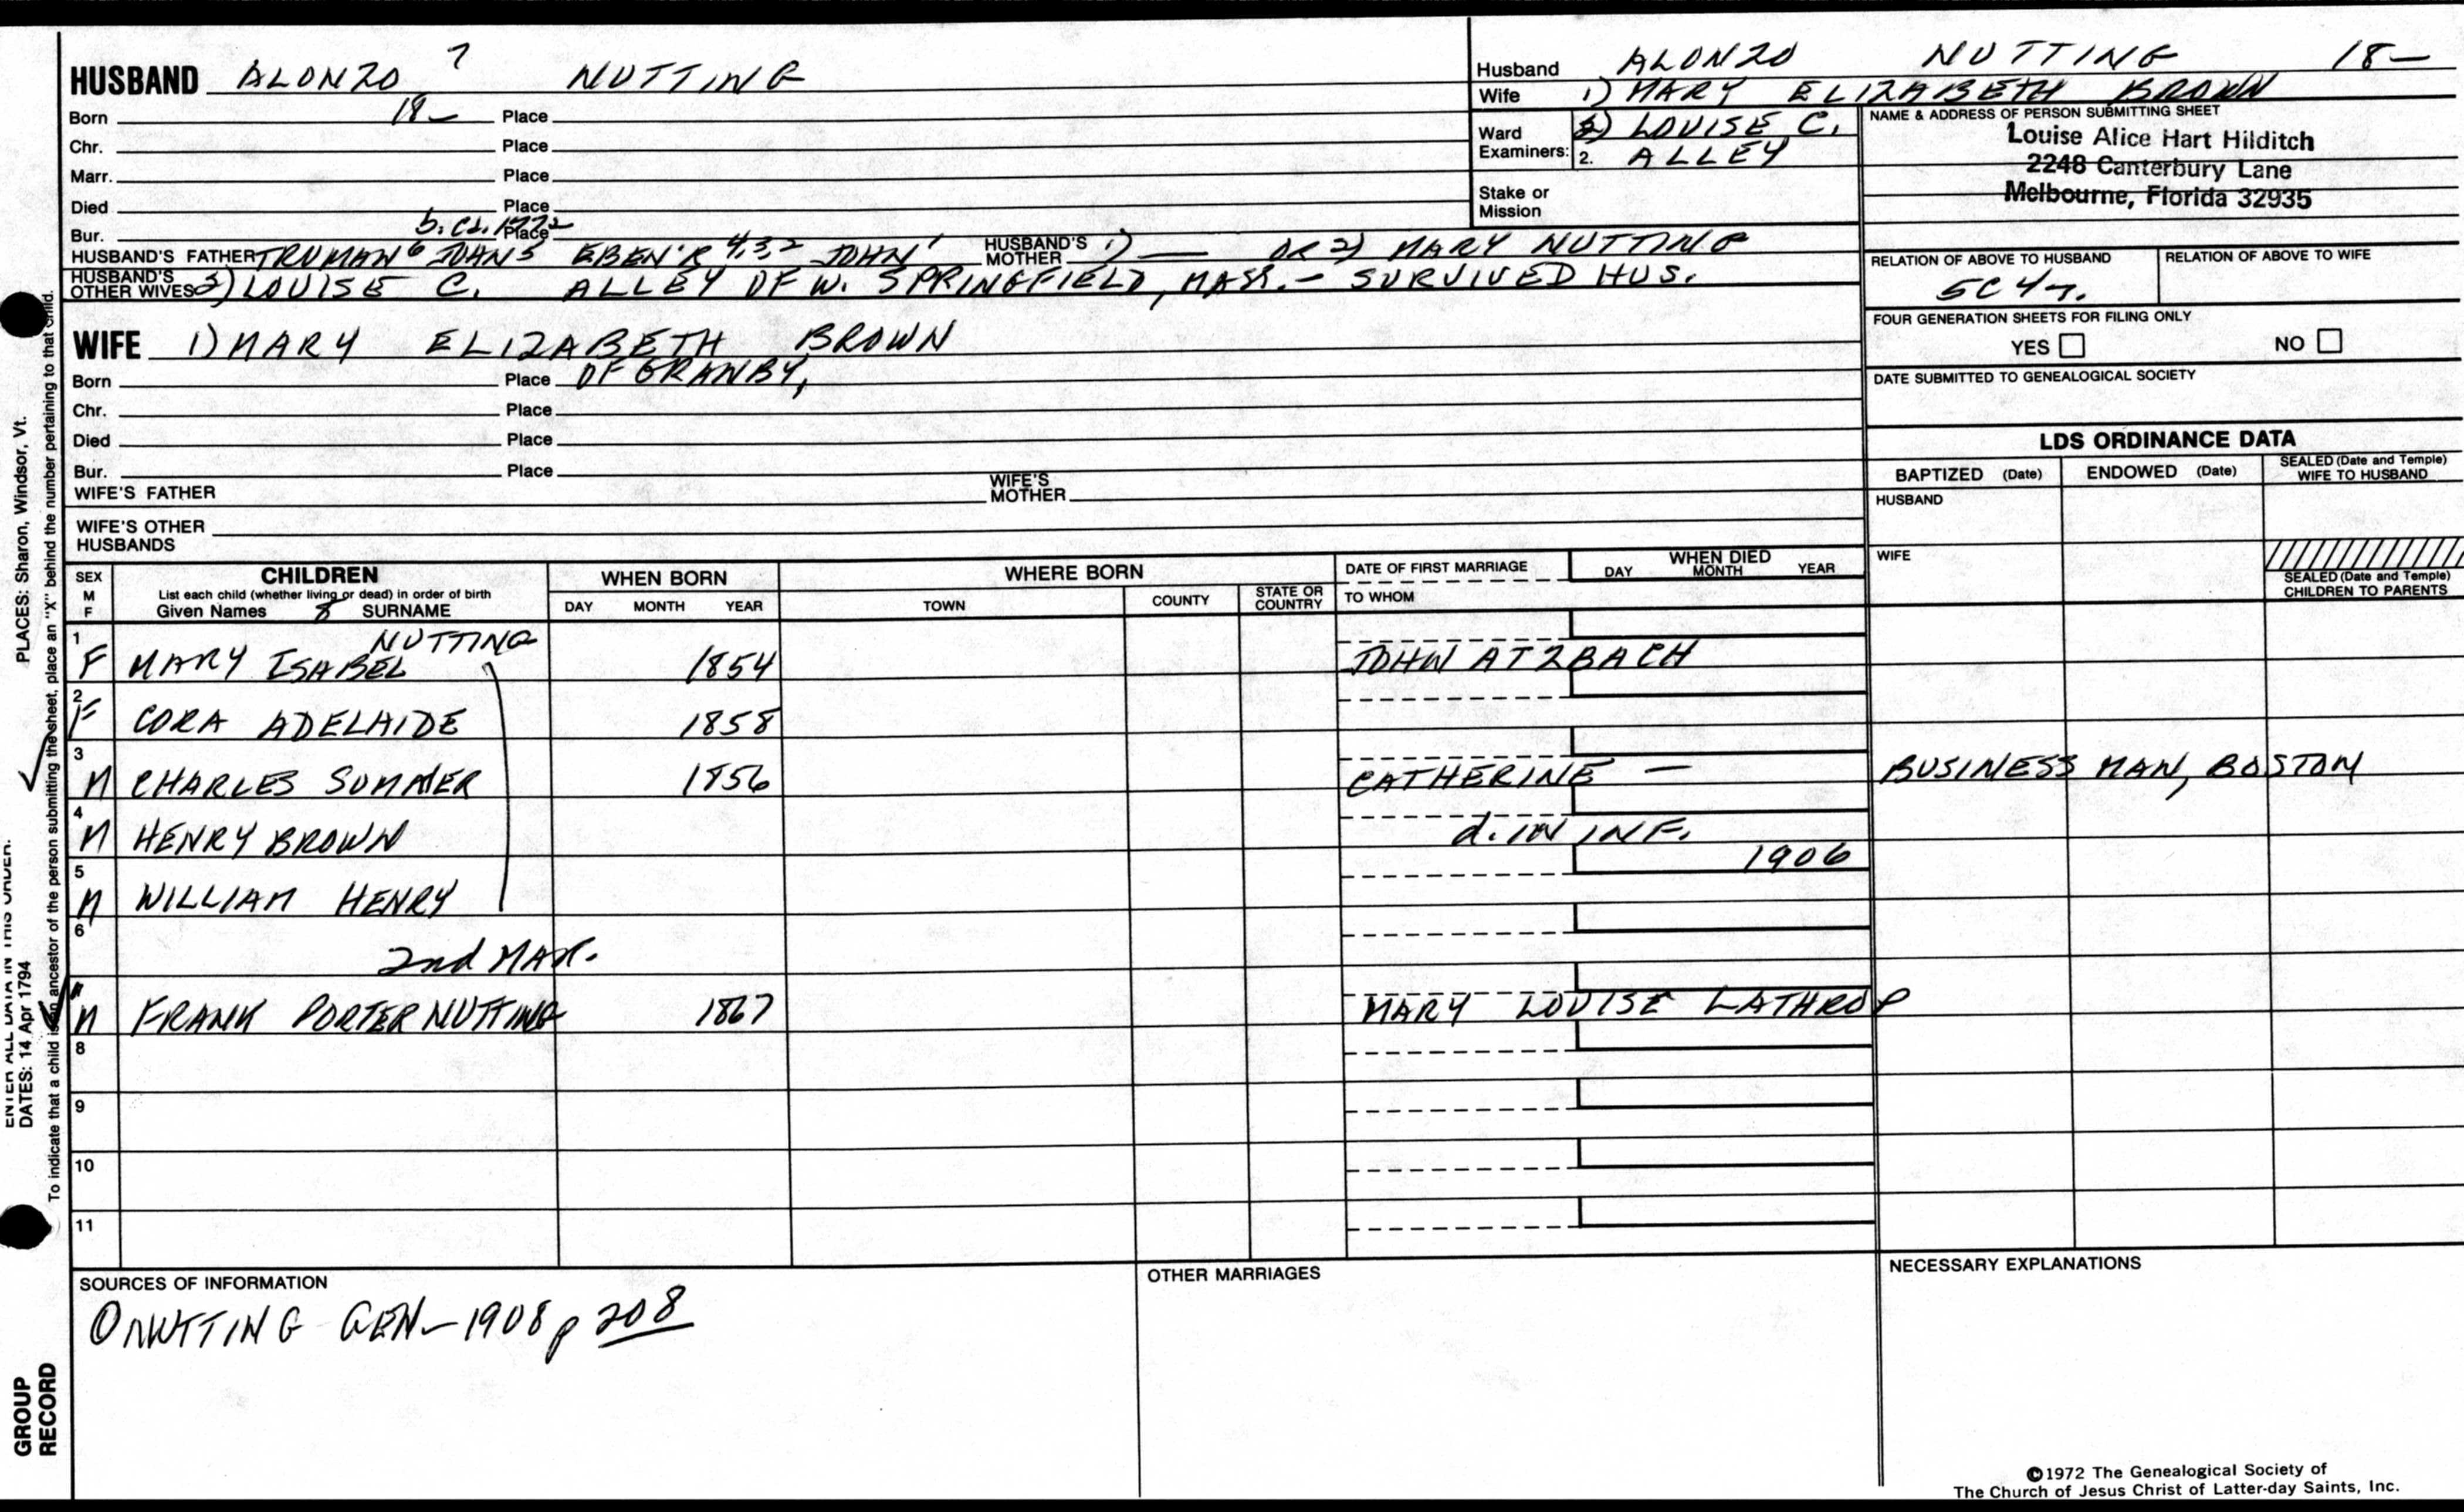 HUSBAND ALONZO 7 NUTTING
Born 18- Place
Chr. Place
Marr. Place
Died Place
Bur. b. ca. 1772 Place
HUSBAND'S FATHER TRUMAN 6 JOHN 5 EBEN'R 4,3,2 JOHN 1 HUSBAND'S MOTHER 1) — OR 2) MARY NUTTING
HUSBAND'S OTHER WIVES 2) LOUISE C. ALLEY OF W. SPRINGFIELD, MASS. - SURVIVED HUS.
Husband ALONZO NUTTING 18-
Wife 1) MARY ELIZABETH BROWN
Ward Examiners: 2) LOUISE C.
2. ALLEY
Stake or Mission
NAME & ADDRESS OF PERSON SUBMITTING SHEET
Louise Alice Hart Hilditch
2248 Canterbury Lane
Melbourne, Florida 32935
RELATION OF ABOVE TO HUSBAND RELATION OF ABOVE TO WIFE
5C 4r.
FOUR GENERATION SHEETS FOR FILING ONLY
YES NO
DATE SUBMITTED TO GENEALOGICAL SOCIETY
WIFE 1) MARY ELIZABETH BROWN
Born Place OF GRANBY,
Chr. Place
Died Place
Bur. Place
WIFE'S FATHER WIFE'S MOTHER
WIFE'S OTHER HUSBANDS
LDS ORDINANCE DATA
BAPTIZED (Date) ENDOWED (Date) SEALED (Date and Temple) WIFE TO HUSBAND
HUSBAND
WIFE
SEALED (Date and Temple) CHILDREN TO PARENTS
SEX M F CHILDREN WHEN BORN WHERE BORN DATE OF FIRST MARRIAGE WHEN DIED
List each child (whether living or dead) in order of birth
Given Names 8 SURNAME DAY MONTH YEAR TOWN COUNTY STATE OR COUNTRY TO WHOM DAY MONTH YEAR
NUTTING
1 F MARY ISABEL 1854 JOHN ATZBACH
2 F CORA ADELAIDE 1858
3 M CHARLES SUMNER 1856 CATHERINE — BUSINESS MAN, BOSTON
4 M HENRY BROWN d. IN INF.
5 M WILLIAM HENRY 1906
6 2nd MAR.
M FRANK PORTER NUTTING 1867 MARY LOUISE LATHROP
8
9
10
11
SOURCES OF INFORMATION
① NUTTING GEN-1908 p 208
OTHER MARRIAGES
NECESSARY EXPLANATIONS
©1972 The Genealogical Society of
The Church of Jesus Christ of Latter-day Saints, Inc.
ENTER ALL DATA IN THIS ORDER:
DATES: 14 Apr 1794
PLACES: Sharon, Windsor, Vt.
To indicate that a child is an ancestor of the person submitting the sheet, place an "X" behind the number pertaining to that child.
GROUP
RECORD